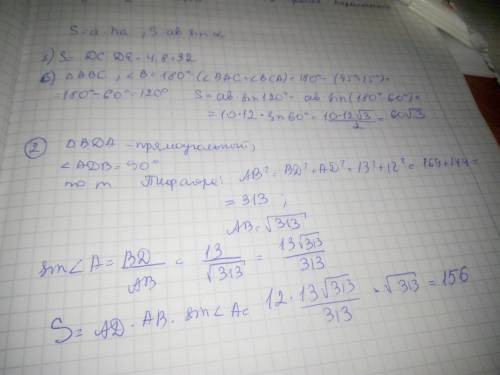 S = a · ha , S = ab sin α
а) S = DC · DE = 4 · 8 = 32
б) △ABC, ∠B = 180° - (∠BAC + ∠BCA) = 180° - (45° + 15°) =
= 180° - 60° = 120° S = ab sin 120° = ab sin (180° - 60°) =
= 10 · 12 · sin 60° = 10·12√3/2 = 60√3
② △BDA - прямоугольный,
∠ADB = 90°
по т. Пифагора: AB² = BD² + AD² = 13² + 12² = 169 + 144 =
= 313 ;
AB = √313
sin∠A = BD/AB = 13/√313 = 13√313/313
S = AD · AB · sin∠A = 12 · 13√313/313 · √313 = 156